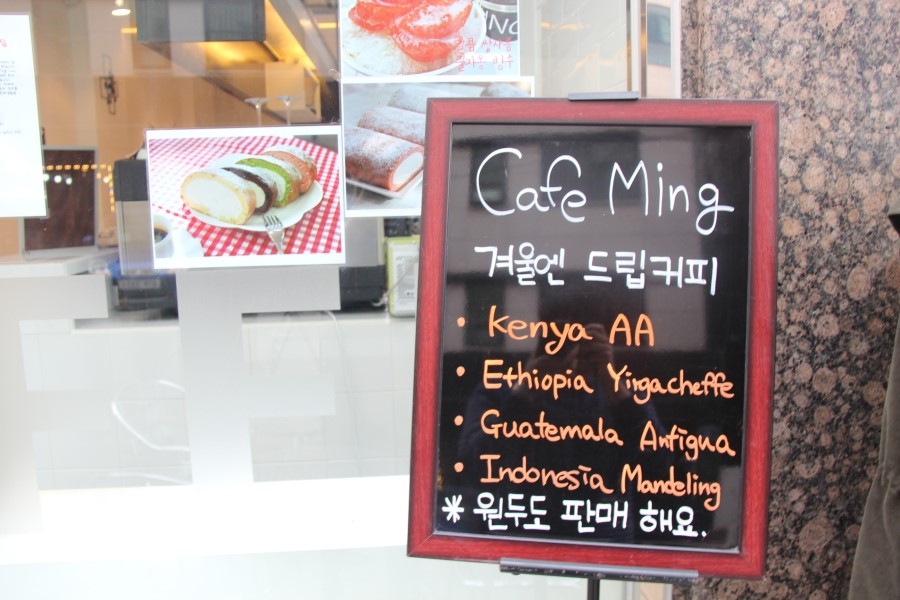 Cafe Ming
겨울엔 드립커피
• Kenya AA
• Ethiopia Yirgacheffe
• Guatemala Antigua
• Indonesia Mandeling
* 원두도 판매 해요.